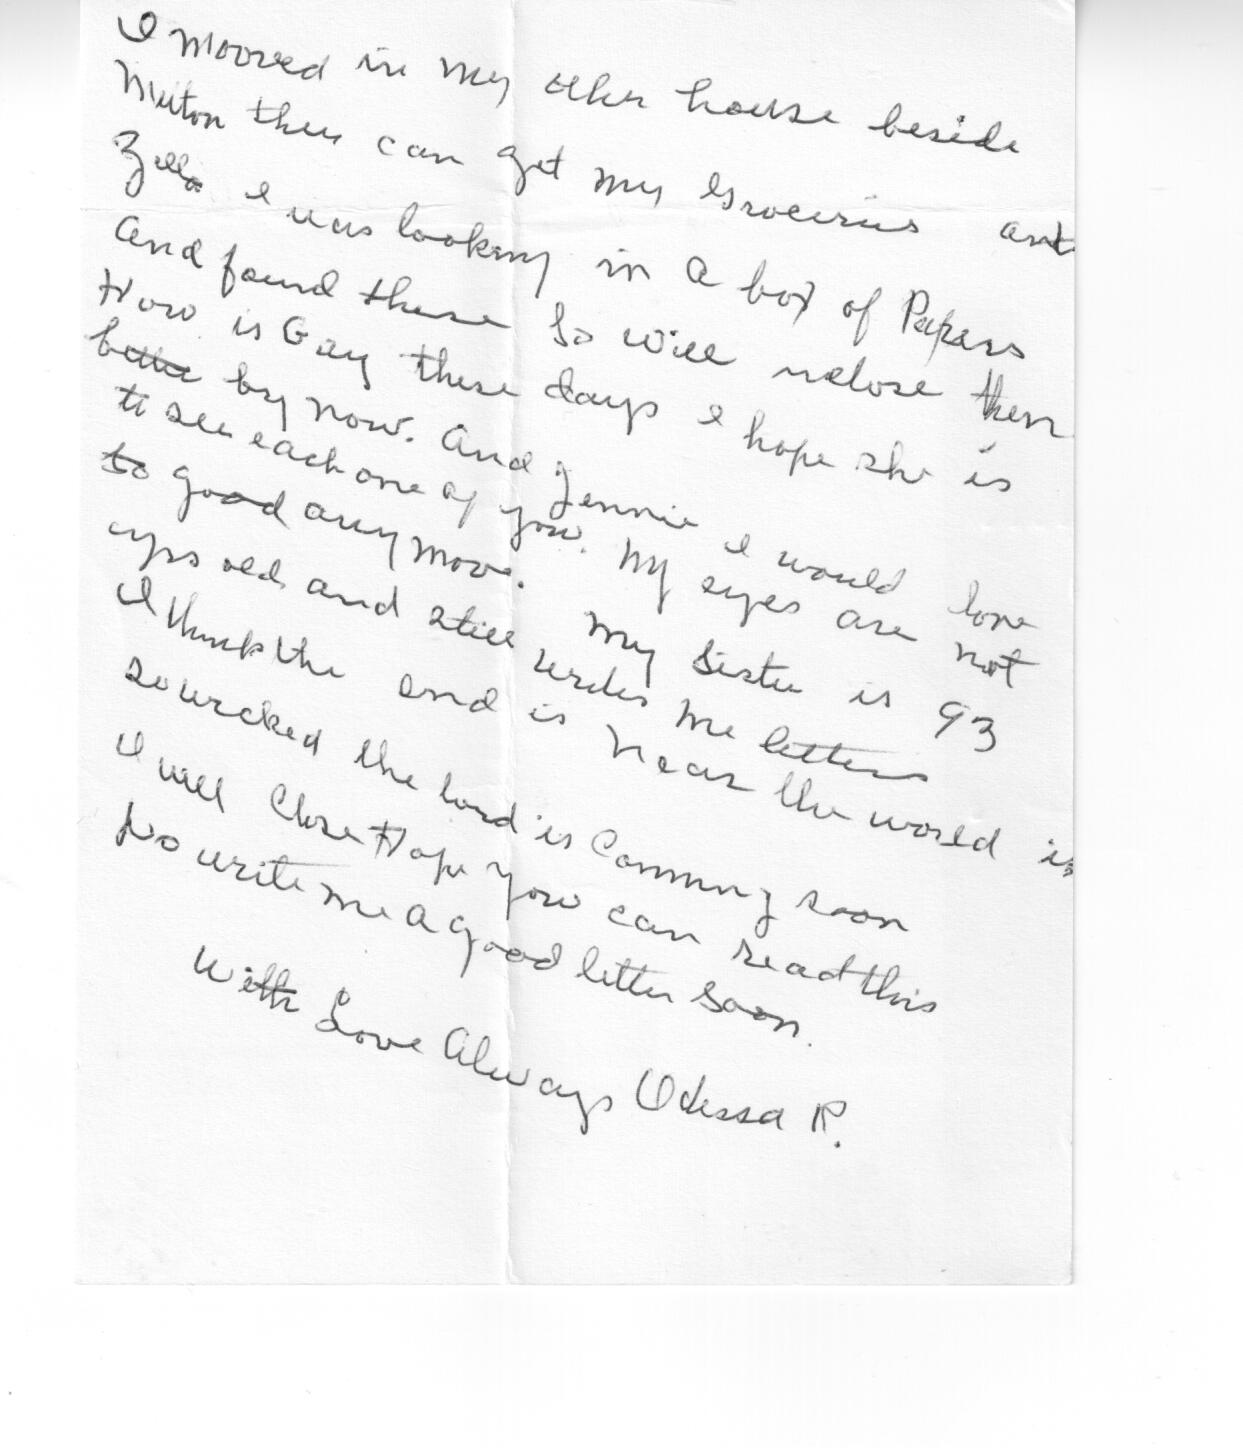 I mooved in my other house beside
Milton they can get my Groceries and
Zella I was looking in a box of Papers
And found these So will inclose them
How is Gay these days I hope she is
better by now. And Jennie I would love
to see each one of you. My eyes are not
to good any more. My Sister is 93
yrs old and still writes me letters
I think the end is near the world is
so wicked the lord is Comming soon
I will Close Hope you can read this
So write me a good letter soon.
With Love Always Odessa R.